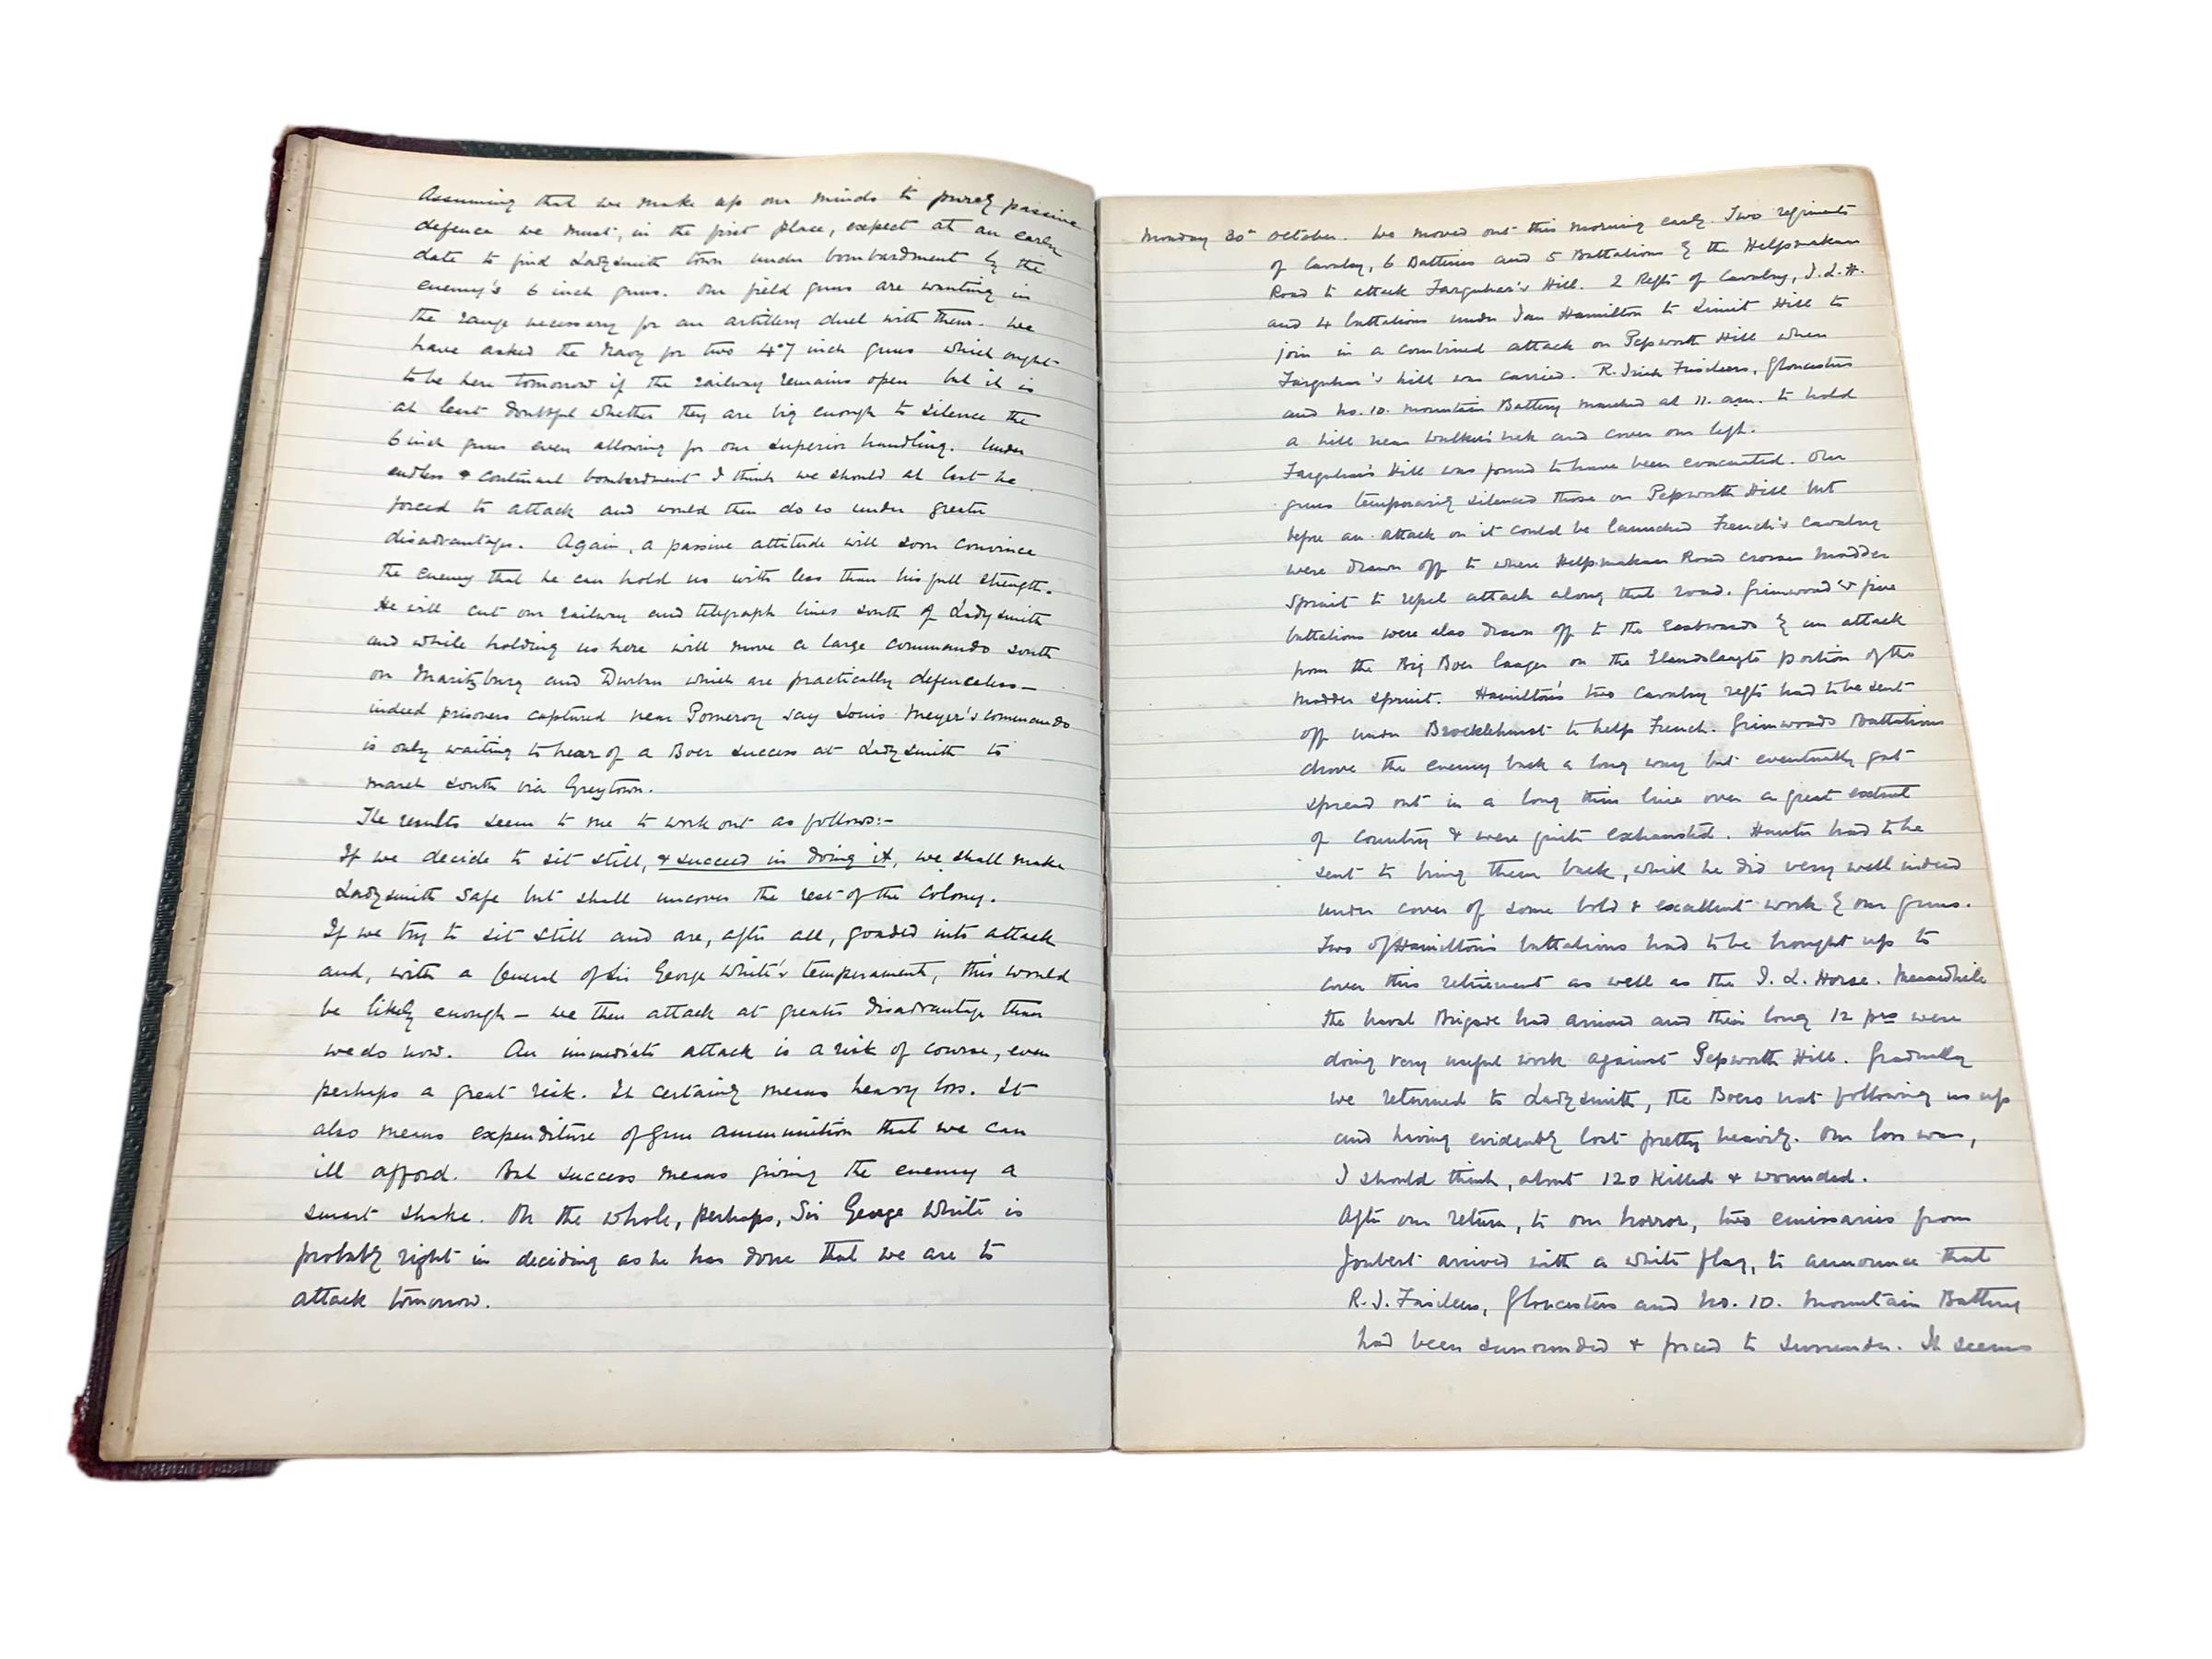 Assuming that we make up our minds to purely passive
defence we must, in the first place, expect at an early
date to find Ladysmith town under bombardment by the
enemy's 6 inch guns. Our field guns are wanting in
the range necessary for an artillery duel with them. We
have asked the Navy for two 4.7 inch guns which ought
to be here tomorrow if the railway remains open but it is
at least doubtful whether they are big enough to silence the
6 inch guns even allowing for our superior handling. Under
endless & continual bombardment I think we should at last be
forced to attack and would then do so under greater
disadvantages. Again, a passive attitude will soon convince
the enemy that he can hold us with less than his full strength.
He will cut our railway and telegraph lines south of Ladysmith
and while holding us here will move a large commando south
on Maritzburg and Durban which are practically defenceless—
indeed prisoners captured near Pomeroy say Louis Meyer's commando
is only waiting to hear of a Boer success at Ladysmith to
march south via Greytown.
The results seem to me to work out as follows:-
If we decide to sit still, & succeed in doing it, we shall make
Ladysmith safe but shall uncover the rest of the Colony.
If we try to sit still and are, after all, goaded into attack
and, with a General of Sir George White's temperament, this would
be likely enough — we then attack at greater disadvantage than
we do now. An immediate attack is a risk of course, even
perhaps a great risk. It certainly means heavy loss. It
also means expenditure of gun ammunition that we can
ill afford. But success means giving the enemy a
smart shake. On the whole, perhaps, Sir George White is
probably right in deciding as he has done that we are to
attack tomorrow.
Monday 30th October. We moved out this morning early. Two regiments
of Cavalry, 6 Batteries and 5 Battalions by the Helpmakaar
Road to attack Farquhar's Hill. 2 Regts of Cavalry, I.L.H.
and 4 battalions under Ian Hamilton to Limit Hill to
join in a combined attack on Pepworth Hill when
Farquhar's hill was carried. R. Irish Fusiliers, Gloucesters
and No. 10. Mountain Battery marched at 11. a.m. to hold
a hill near Walker's nek and cover our left.
Farquhar's Hill was found to have been evacuated. Our
guns temporarily silenced those on Pepworth Hill but
before an attack on it could be launched French's Cavalry
were drawn off to where Helpmakaar Road crosses Modder
Spruit to repel attack along that road. Grimwood's five
battalions were also drawn off to the Eastwards by an attack
from the Big Boer laager on the Elandslaagte portion of the
Modder Spruit. Hamilton's two Cavalry regts had to be sent
off under Brocklehurst to help French. Grimwoods Battalions
drove the enemy back a long way but eventually got
spread out in a long thin line over a great extent
of country & were quite exhausted. Hunter had to be
sent to bring them back, which he did very well indeed
under cover of some bold & excellent work by our guns.
Two of Hamilton's battalions had to be brought up to
cover this retirement as well as the I. L. Horse. Meanwhile
the Naval Brigade had arrived and their long 12 prs were
doing very useful work against Pepworth Hill. Gradually
we returned to Ladysmith, the Boers not following us up
and having evidently lost pretty heavily. Our loss was,
I should think, about 120 Killed & wounded.
After our return, to our horror, two emissaries from
Joubert arrived with a white flag, to announce that
R. I. Fusiliers, Gloucesters and No. 10. Mountain Battery
had been surrounded & forced to surrender. It seems